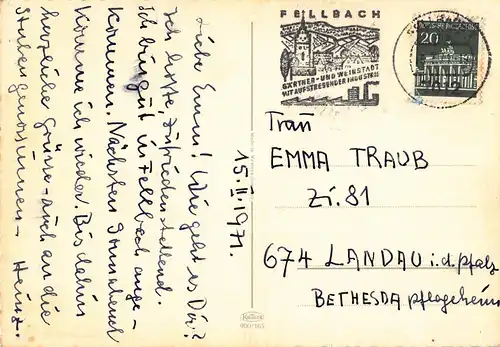 Liebe Emm! Wie geht es Dir?
Ich hoffe, zufriedenstellend.
Ich bin gut in Fellbach ange-
kommen. Nächsten Sonnabend
komme ich wieder. Bis dahin
herzliche Grüsse - auch an die
Stubengenossinnen - Heinz.
15.II.1971.
FELLBACH
GÄRTNER- UND WEINSTADT
MIT AUFSTREBENDER INDUSTRIE
20
Frau
EMMA TRAUB
Zi. 81
674 LANDAU i.d. Pfalz
BETHESDA Pflegeheim
Krüger
900/165